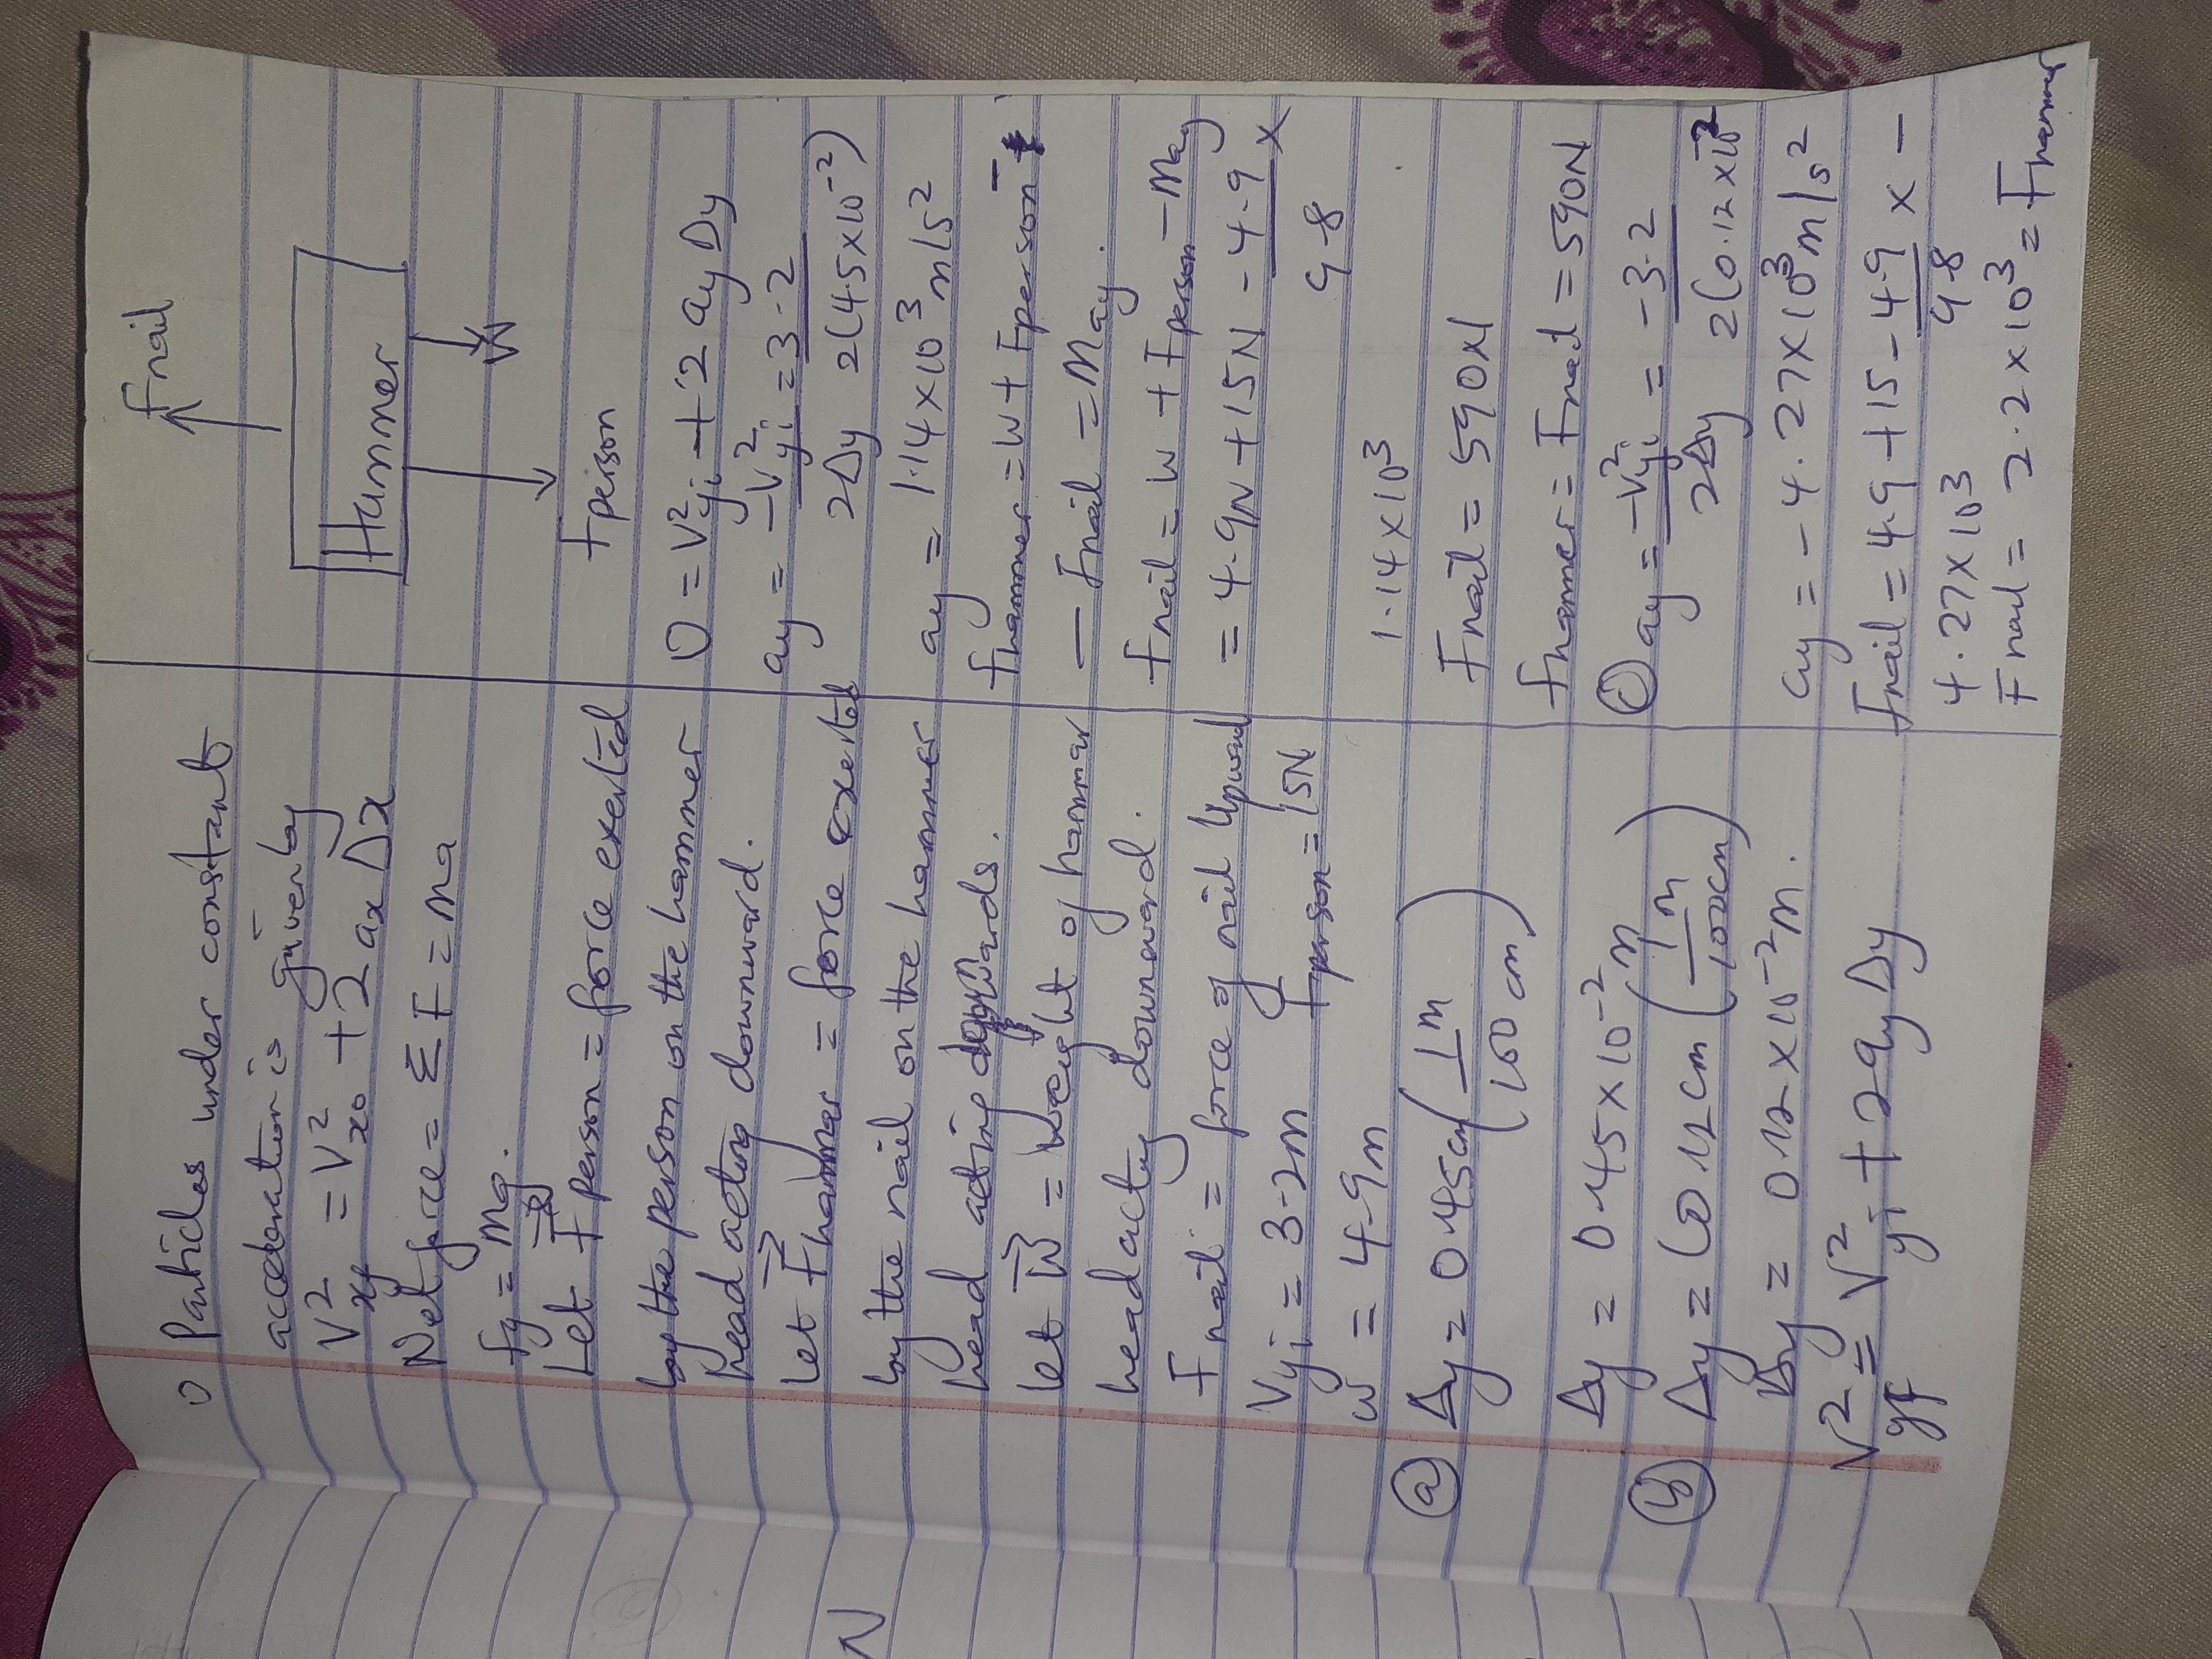 Particles under constant
acceleration is given by
V²xf = V²x0 + 2 ax Δx
Net force = Σ F = ma
Fy = Mg.
Let F person = force exerted
by the person on the hammer
head acting downward.
Let F hammer = force exerted
by the nail on the hammer
head acting upwards.
Let W = weight of hammer
head acting downward.
F nail = force of nail upward
Vyi = 3.2m Fperson = 15N
w = 4.9n
(a) Δy = 0.45cm (1m / 100 cm)
Δy = 0.45 x 10⁻² m
(b) Δy = (0.12 cm (1m / 100cm)
Δy = 0.12 x 10⁻² m.
V²yf = V²yi + 2ay Δy
Fnail
Hammer
W
F person
0 = V²yi + 2 ay Δy
ay = -V²yi / 2Δy = 3.2 / 2(45x10⁻²)
ay = 1.14 x 10³ m/s²
Fhammer = W + Fperson
- Fnail = May.
Fnail = W + Fperson - May
= 4.9N + 15N - 4.9 / 9.8 x
1.14 x 10³
Fnail = 590N
Fhamer = Fnail = 590N
ay = -V²yi / 2Δy = -3.2 / 2(0.12x10⁻²
ay = -4.27 x 10³ m/s²
Fnail = 4.9 + 15 - 4.9 / 9.8 x -
4.27 x 10³
Fnail = 2.2 x 10³ = Fhamer
N